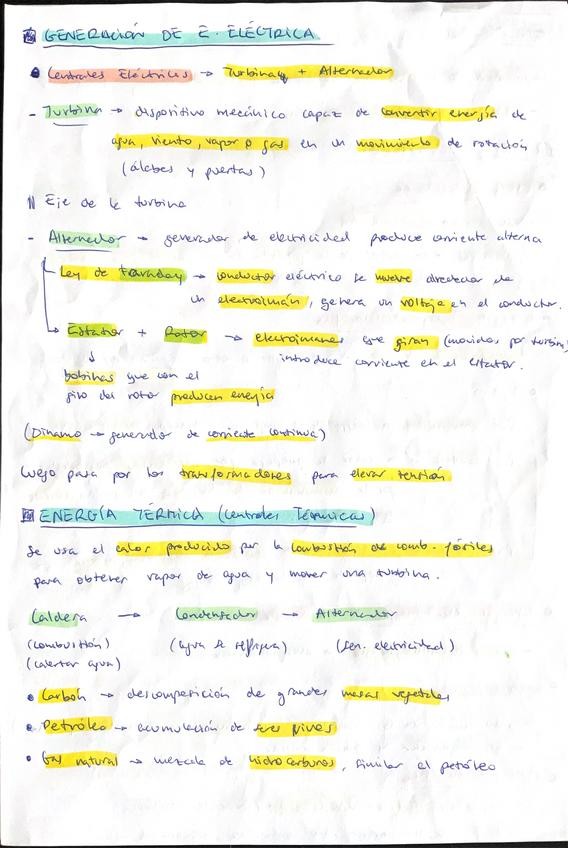 GENERACIÓN DE E. ELÉCTRICA
• Centrales Eléctricas → Turbina + Alternador
- Turbina → dispositivo mecánico capaz de convertir energía de
agua, viento, vapor o gas en un movimiento de rotación
(álabes y puertas)
Eje de la turbina
- Alternador → generador de electricidad produce corriente alterna
Ley de Faraday → conductor eléctrico se mueve alrededor de
un electroimán, genera un voltaje en el conductor.
Estator + Rotor → electroimanes que giran (movidos por turbina)
↓ introduce corriente en el estator.
bobinas que con el
giro del rotor producen energía
(Dinamo → generador de corriente continua)
Luego pasa por los transformadores para elevar tensión
ENERGÍA TÉRMICA (Centrales Térmicas)
Se usa el calor producido por la combustión de comb. fósiles
para obtener vapor de agua y mover una turbina.
Caldera → Condensador → Alternador
(combustión) (agua se refrigera) (Gen. electricidad)
(calentar agua)
• Carbón → descomposición de grandes masas vegetales
• Petróleo → acumulación de seres vivos
• Gas natural → mezcla de hidrocarburos, similar al petróleo